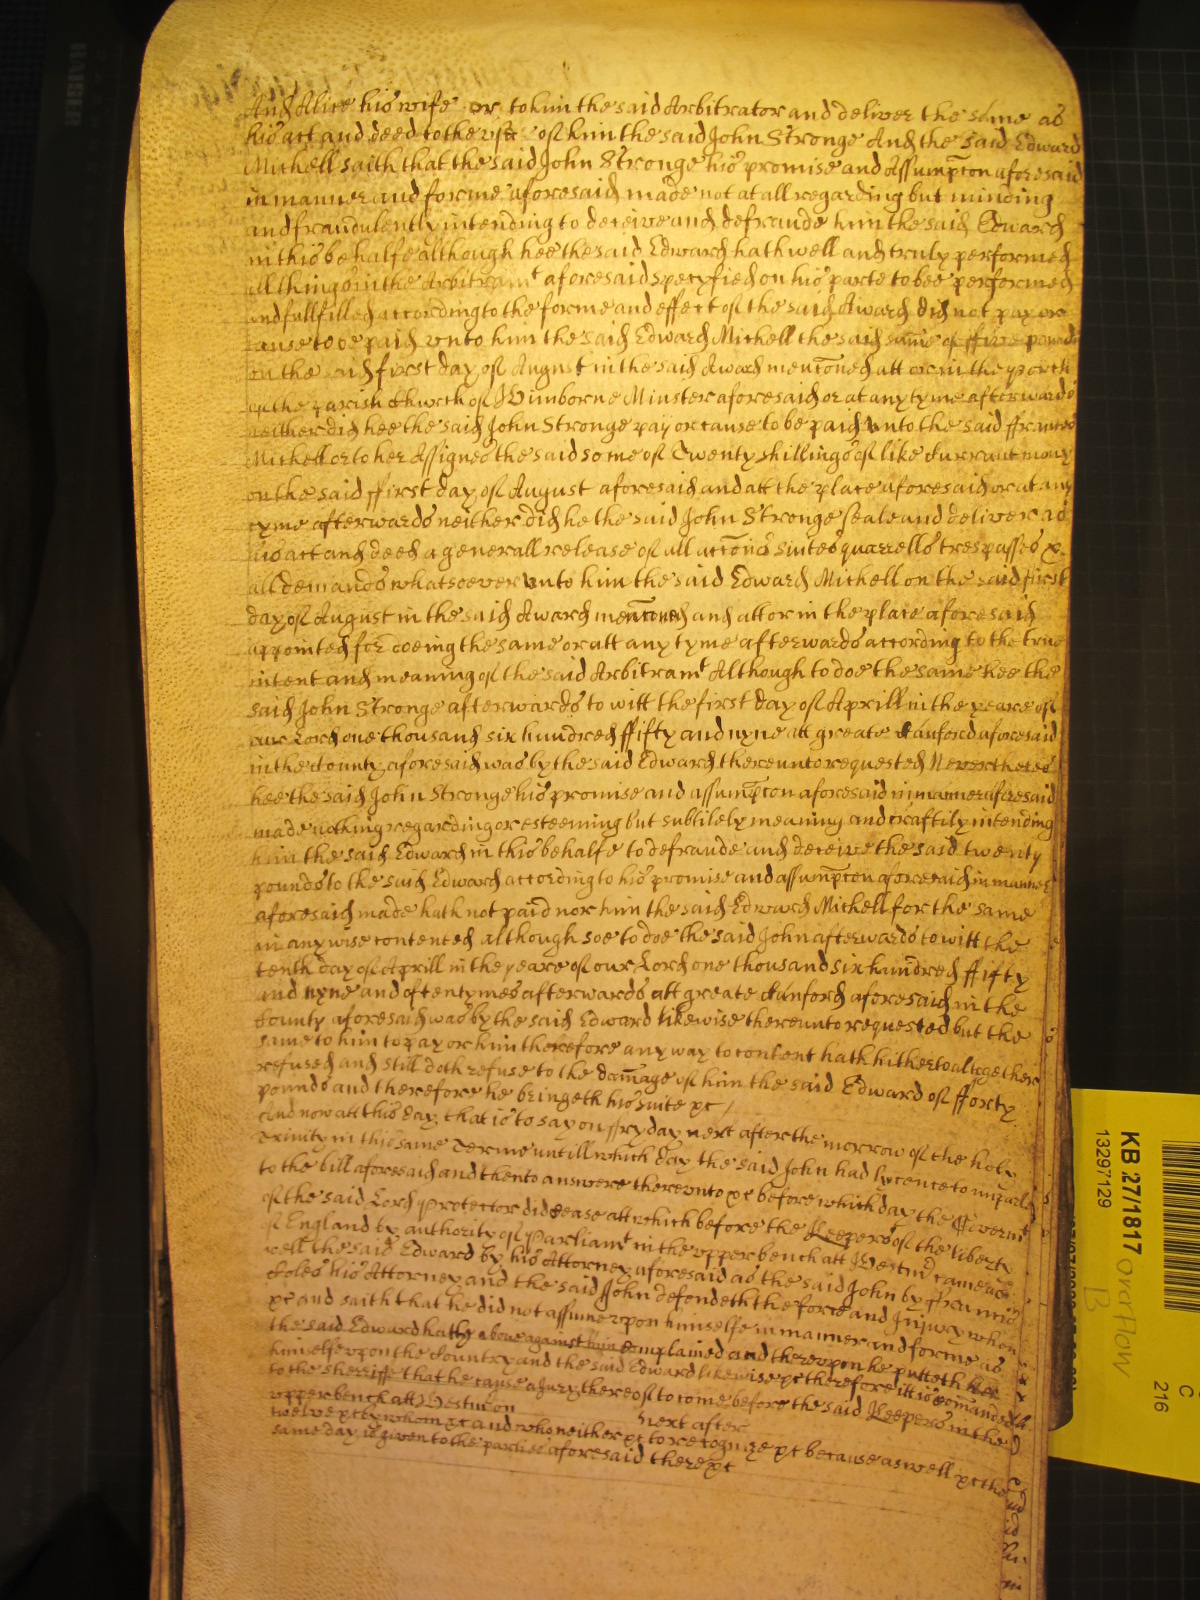 And Alice his wife or to him the said Arbitrator and deliver the same as
his act and deed to the use of him the said John Stronge And the said Edward
Michell saith that the said John Stronge his promise and Assumpcon aforesaid
in manner and forme aforesaid made not at all regarding but minding
and fraudulently intending to deceive and defraude him the said Edward
in this behalfe although hee the said Edward hath well and truly performed
all things in the Arbitramt aforesaid specyfied on his parte to bee performed
and fullfilled according to the forme and effect of the said Award did not pay or
cause to be paid unto him the said Edward Michell the said same of ffive pounds
on the said first day of August in the said Award menconed att or in the porch
of the parish Church of Wimborne Minster aforesaid or at any tyme afterwards
neither did hee the said John Stronge pay or cause to be paid unto the said ffrances
Michell or to her Assignes the said some of Twenty shillings of like Currant mony
on the said ffirst day of August aforesaid and att the place aforesaid or at any
tyme afterwards neither did he the said John Stronge seale and deliver as
his act and deed a generall release of all accons suites quarrells trespasses &
all demands whatsoever unto him the said Edward Michell on the said first
day of August in the said Award menconed and att or in the place aforesaid
appointed for doeing the same or att any tyme afterwards according to the true
intent and meaning of the said Arbitramt Although to doe the same hee the
said John Stronge afterwards to witt the first day of Aprill in the yeare of
our Lord one thousand six hundred ffifty and nyne att greate Canford aforesaid
in the County aforesaid was by the said Edward thereunto requested Neverthelesse
hee the said John Stronge his promise and assumpcon aforesaid in manner aforesaid
made nothing regarding or esteeming but subtilely meaning and craftily intending
him the said Edward in this behalfe to defraude and deceive the said twenty
pounds to the said Edward according to his promise and assumpcon aforesaid in manner
aforesaid made hath not paid nor him the said Edward Michell for the same
in any wise contented although soe to doe the said John afterwards to witt the
tenth day of Aprill in the yeare of our Lord one thousand six hundred ffifty
and nyne and oftentymes afterwards att greate Canford aforesaid in the
County aforesaid was by the said Edward likewise thereunto requested but the
same to him to pay or him therefore any way to content hath hitherto altogether
refused and still doth refuse to the damage of him the said Edward of fforty
pounds and therefore he bringeth his suite &c /
And now att this day that is to say on ffryday next after the morrow of the holy
Trinity in this same Terme untill which day the said John had lycence to imparle
to the bill aforesaid and then to answere thereunto &c before which day the Governmt
of the said Lord Protector did cease att which before the Keepers of the liberty
of England by authority of Parliamt in the upper bench att Westmr came as
well the said Edward by his Attorney aforesaid as the said John by ffrancis
Coles his Attorney and the said John defendeth the force and Injury when
&c and saith that he did not assume upon himselfe in manner and forme as
the said Edward hath above against him complained and thereupon he putteth
himselfe upon the Country and the said Edward likewise &c therefore itt is comanded
to the sherriffe that he cause a Jury thereof to come before the said Keepers in the
upper bench att Westmr on next after
twelve &c by whom &c and who neither &c to recognize &c because aswell &c the
same day is given to the parties aforesaid there &c
KB 27/1817 overflow
B
13297129
C
216